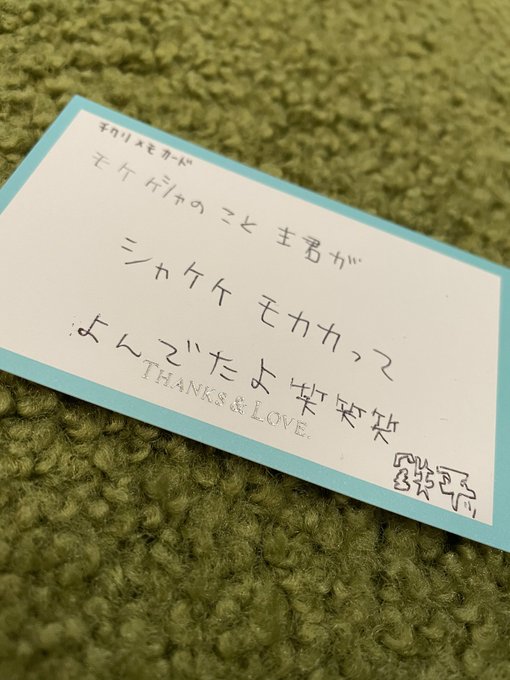 チクリメモカード
モケケシャのこと主君が
シャケケモカカって
よんでたよ笑笑笑
THANKS & LOVE.
鉄平